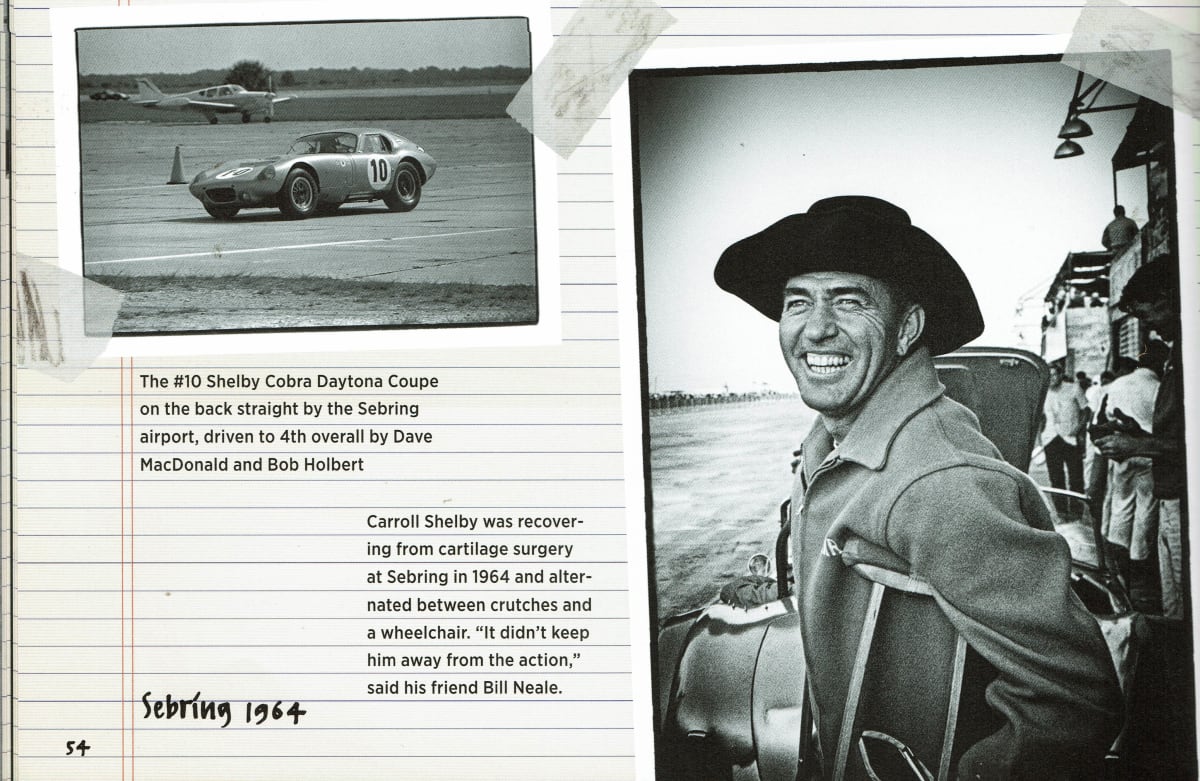 10
10
The #10 Shelby Cobra Daytona Coupe
on the back straight by the Sebring
airport, driven to 4th overall by Dave
MacDonald and Bob Holbert
Carroll Shelby was recover-
ing from cartilage surgery
at Sebring in 1964 and alter-
nated between crutches and
a wheelchair. “It didn’t keep
him away from the action,”
said his friend Bill Neale.
Sebring 1964
54